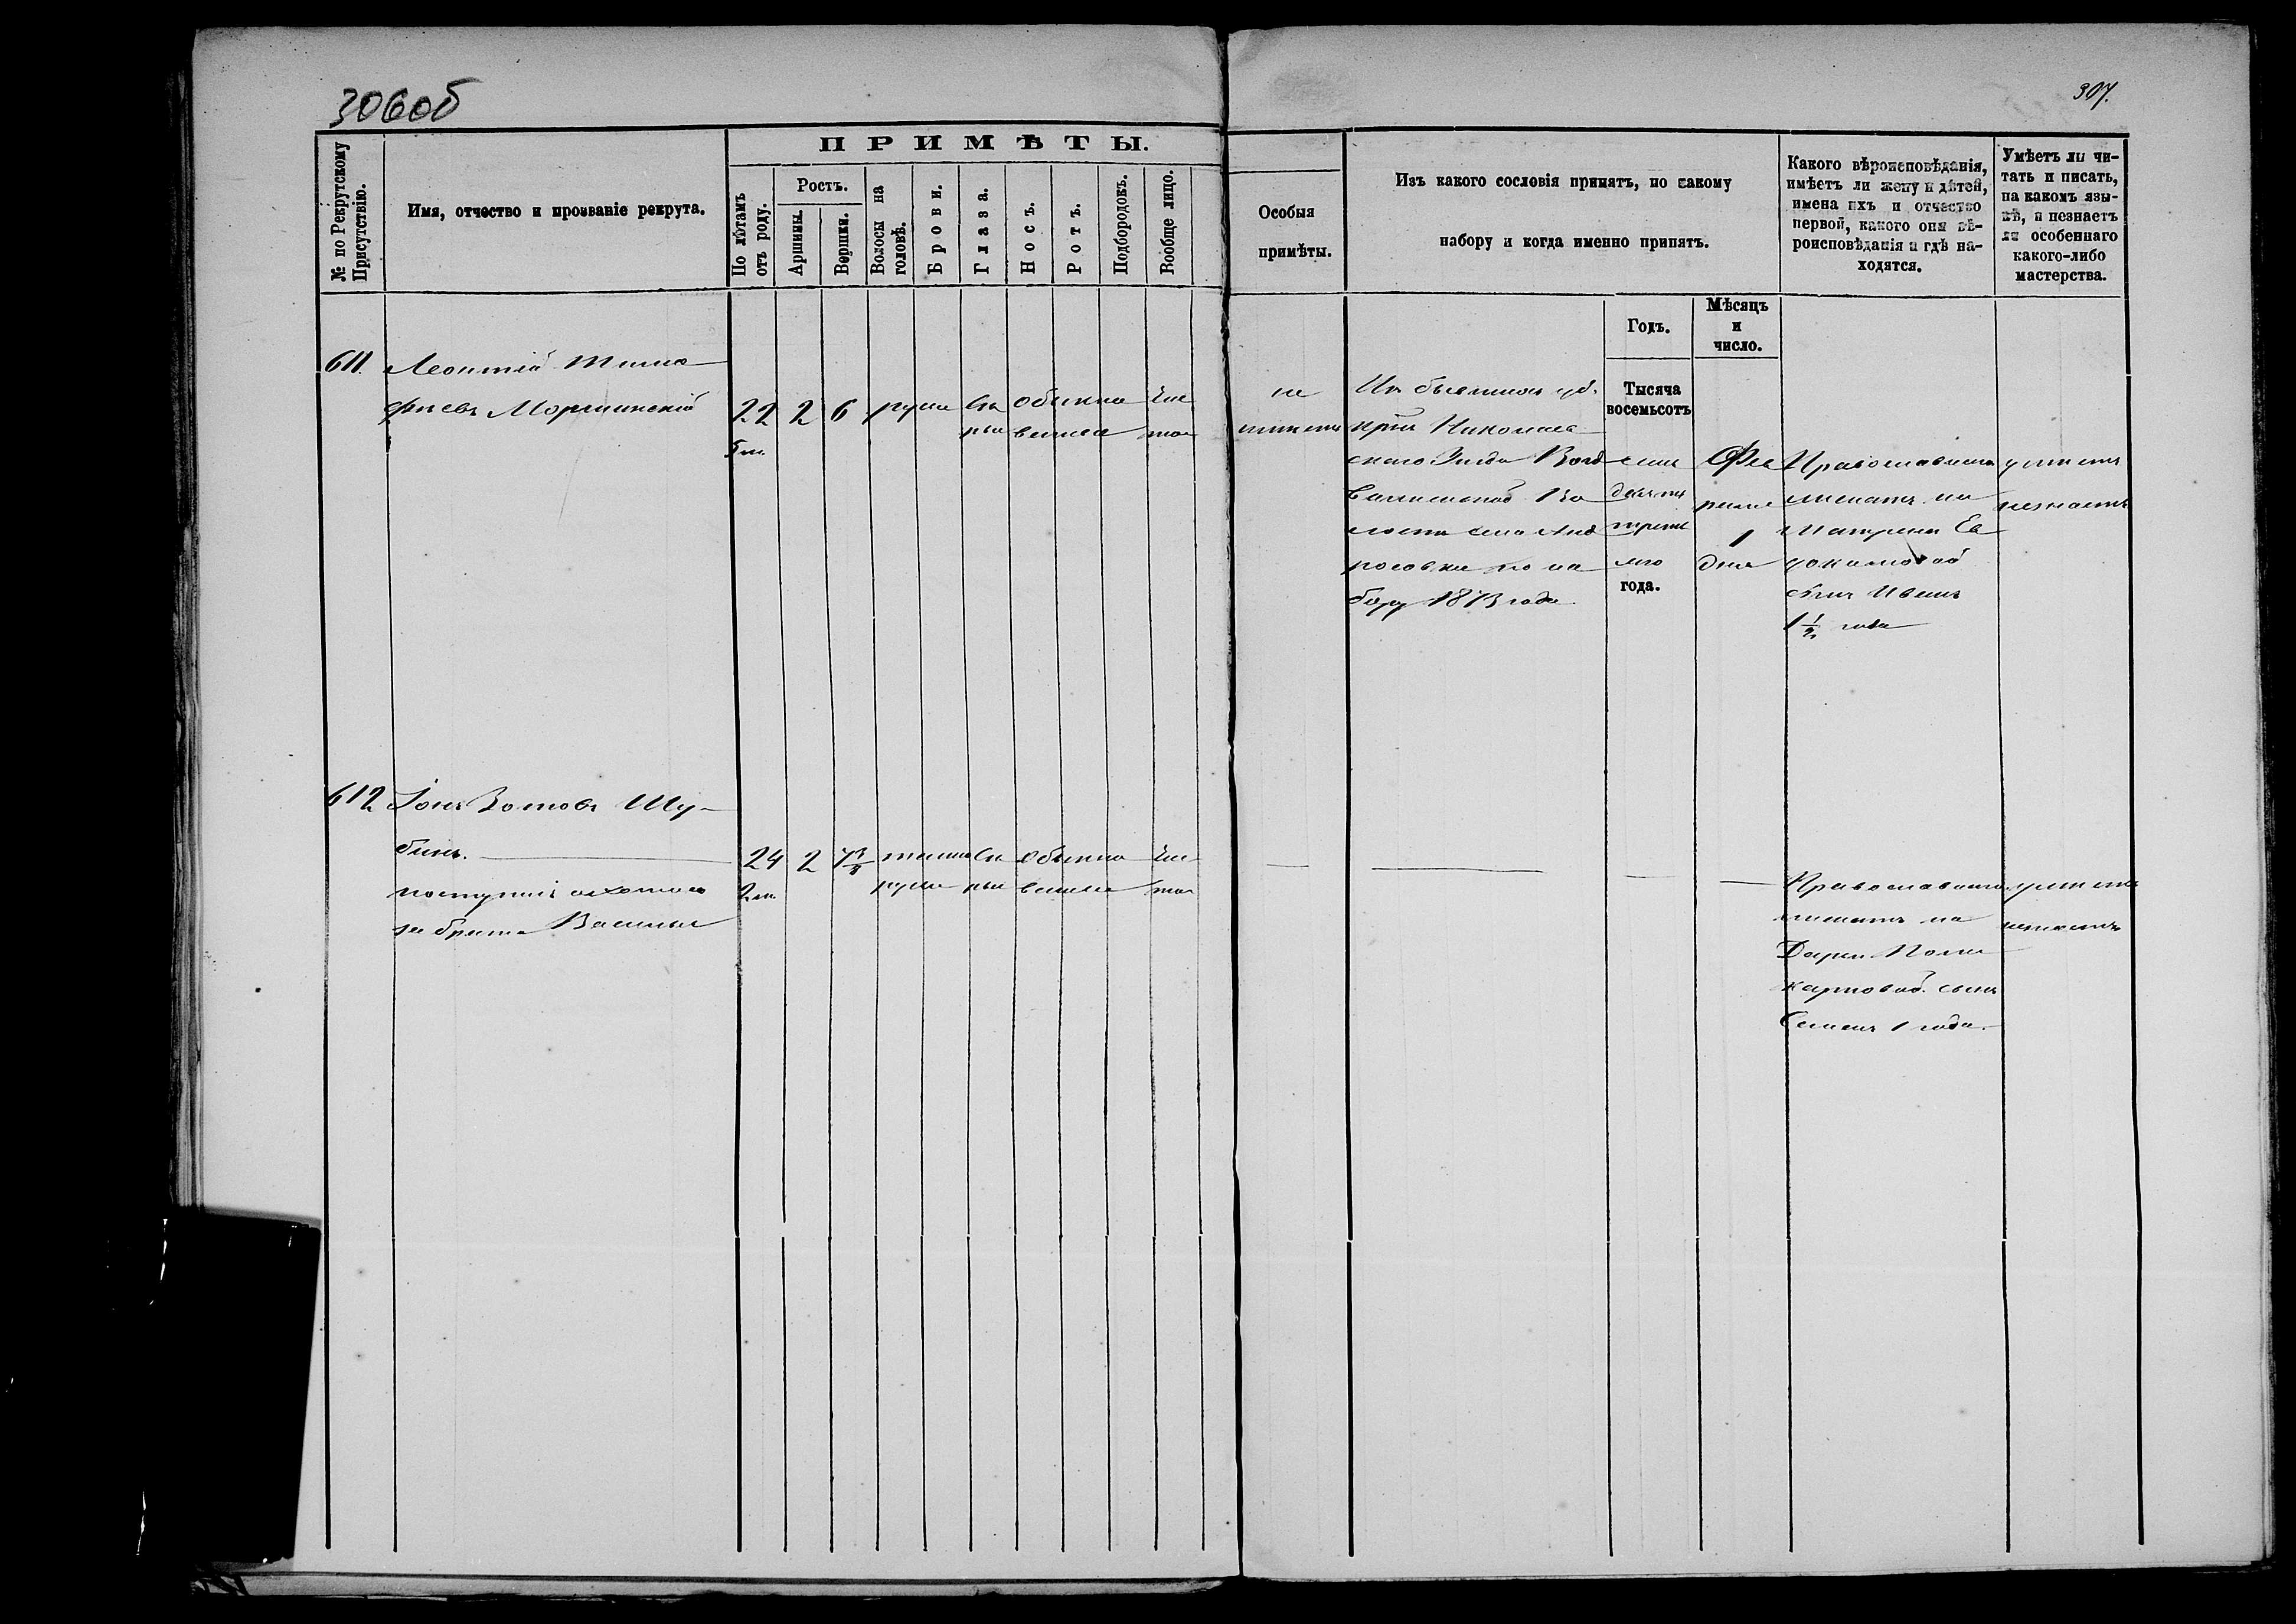 306об
307.
№ по Рекрутскому Присутствію.
Имя, отчество и прозваніе рекрута.
ПРИМѢТЫ.
По лѣтамъ отъ роду.
Ростъ.
Аршины.
Вершки.
Волосы на головѣ.
Брови.
Глаза.
Носъ.
Ротъ.
Подбородокъ.
Вообще лицо.
Особыя
примѣты.
Изъ какого сословія принятъ, по какому
набору и когда именно принятъ.
Какого вѣроисповѣданія,
имѣетъ ли жену и дѣтей,
имена ихъ и отчество
первой, какого они вѣ-
роисповѣданія и гдѣ на-
ходятся.
Умѣетъ ли чи-
тать и писать,
на какомъ язы-
кѣ, и незнаетъ
ли особеннаго
какого-либо
мастерства.
Годъ.
Мѣсяцъ
и
число.
611. Леонтій Тимо
фѣевъ
22 2 6 русы Сѣ обыкно Чис
5 м. рые венные тое
не
имѣетъ
Изъ бывшихъ уд.
крѣп. Николаев
скаго Уѣзда
Во
лости села Анд
росовки по на
бору 1873 года
Тысяча
восемьсотъ
семь
десятъ
треть
яго
года.
Фев
раля
1
дня
Православнаго
женатъ на
Матренѣ Ев
докимовой
сынъ Иванъ
1½ года
неумѣетъ
незнаетъ
612 Іона Зотовъ Шу-
бинъ.
поступилъ охотою
за брата Василья
24 2 7⅞ темно Сѣ обыкно Чис
2 м. русы рые венные тое
Православнаго
женатъ на
Дарьѣ Поли
карповой. сынъ
Семенъ 1 года.
неумѣетъ
незнаетъ